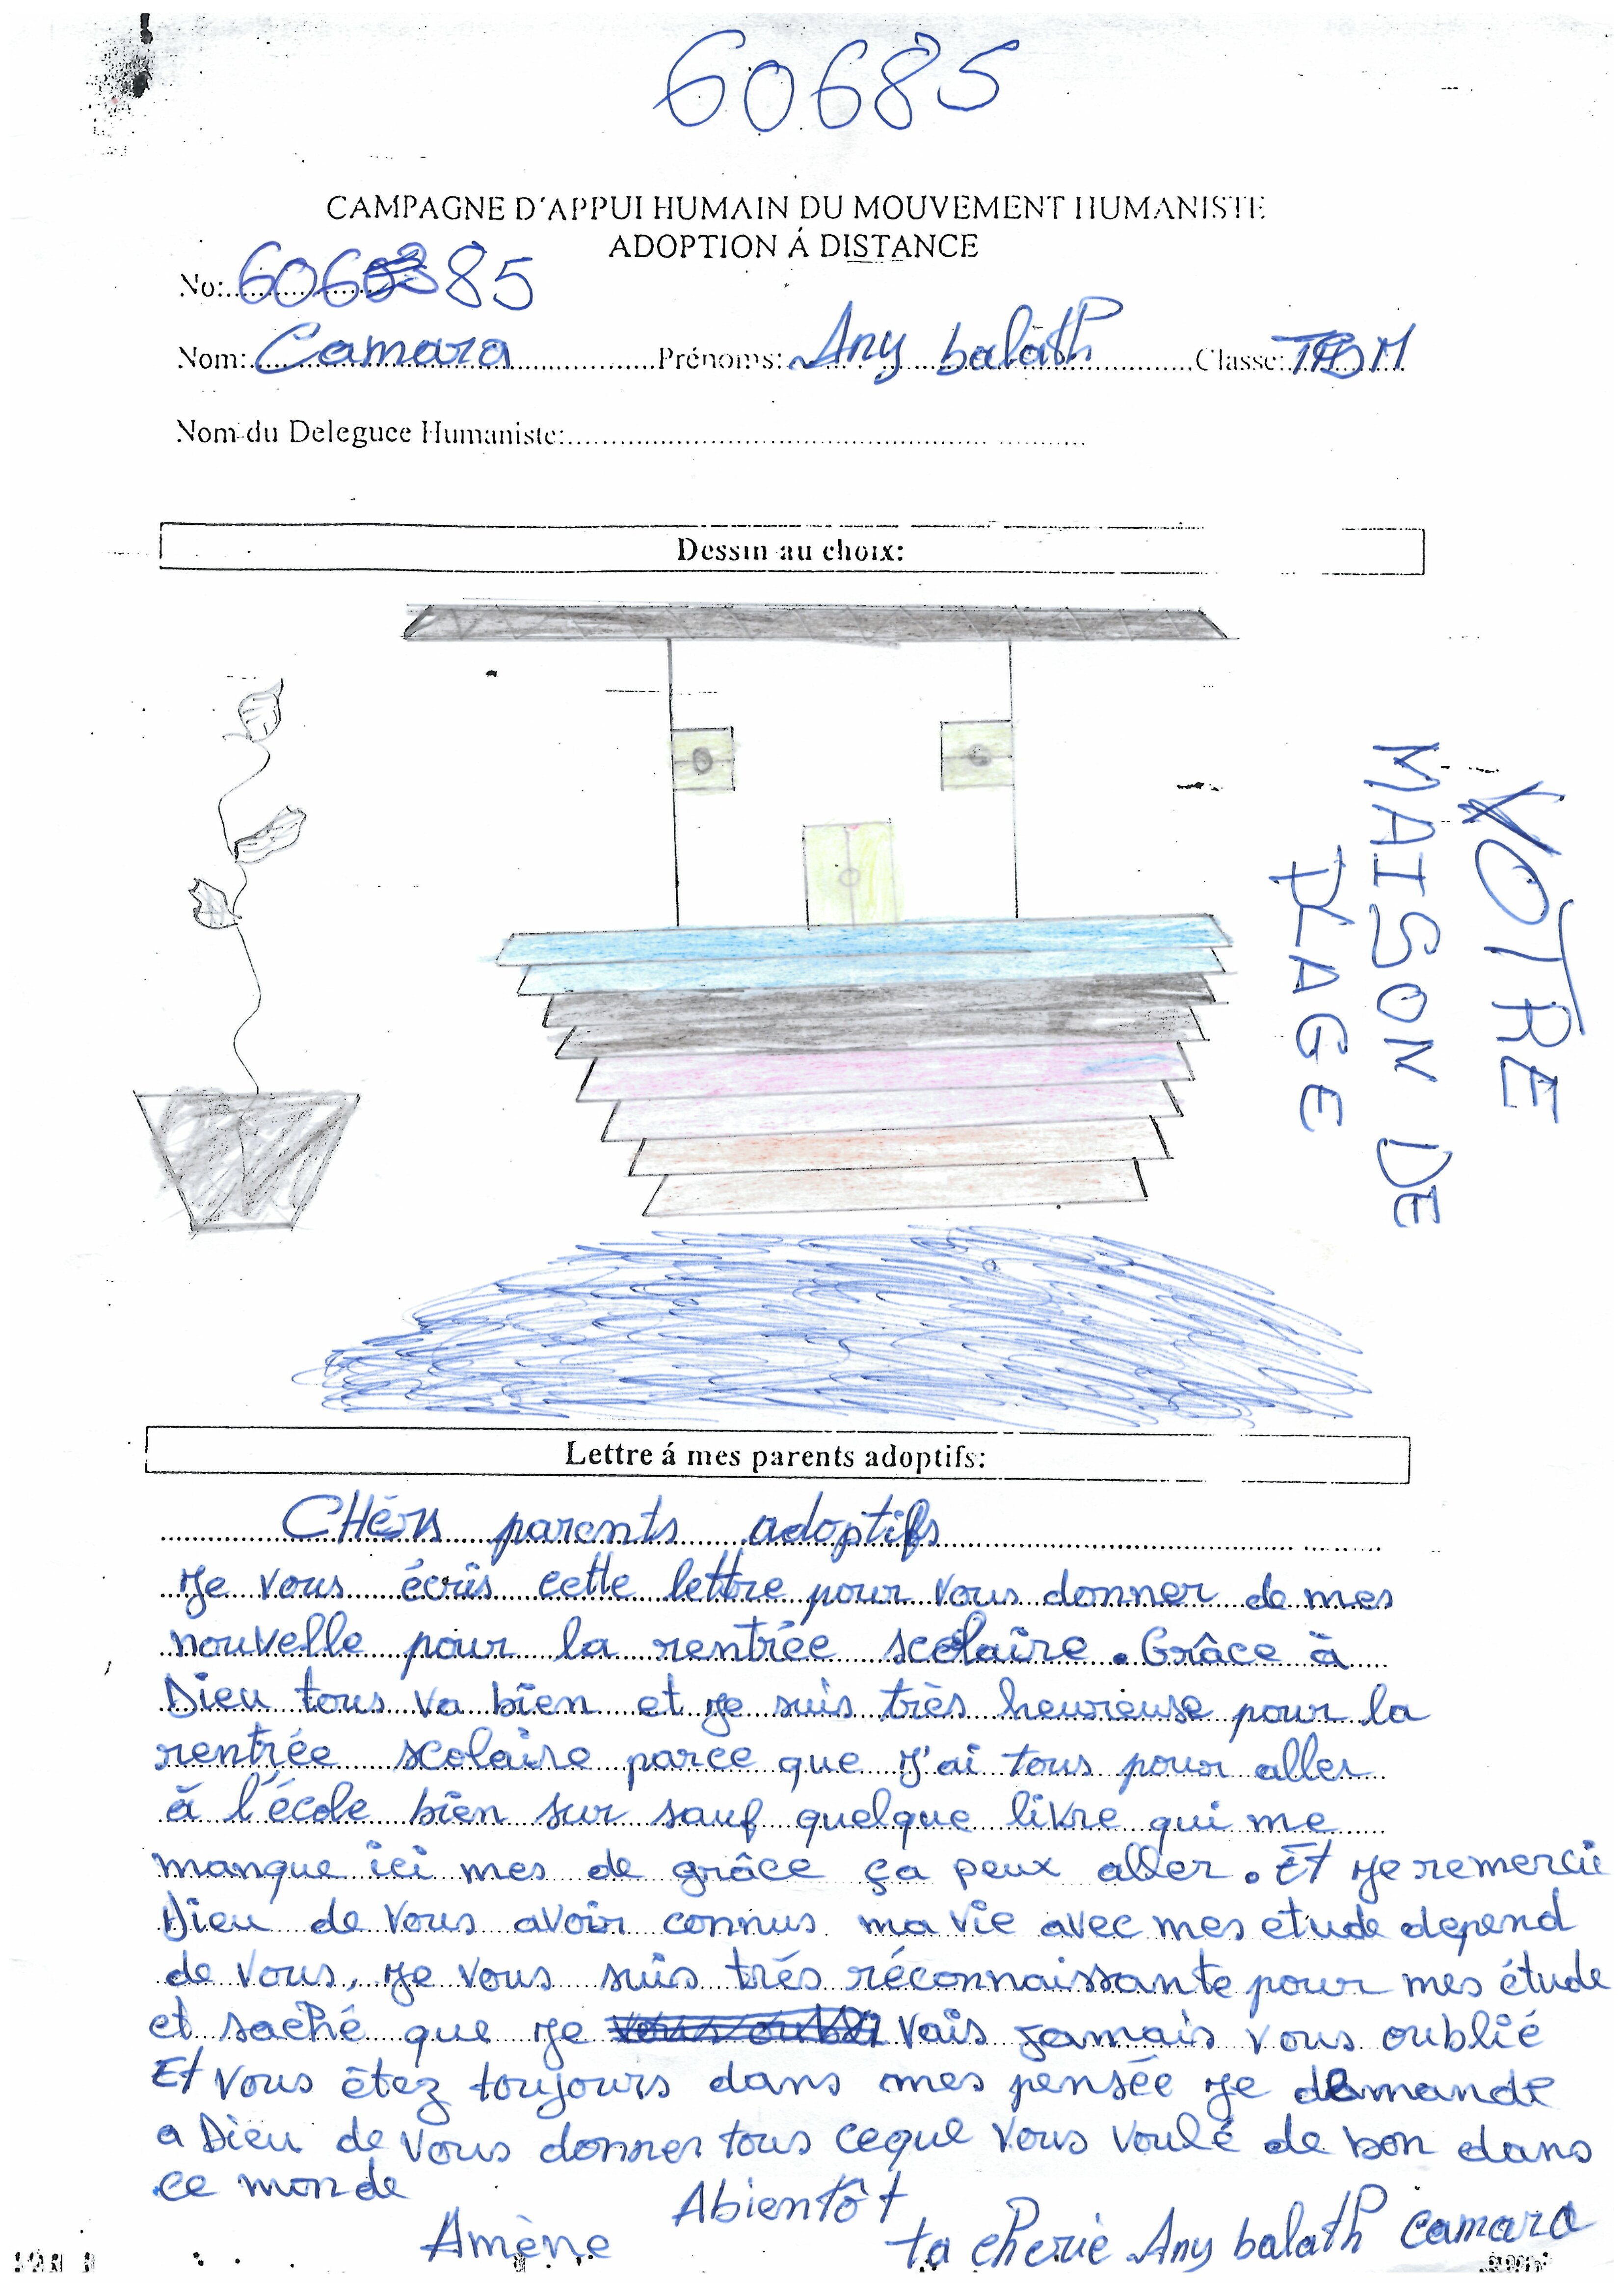 60685
CAMPAGNE D'APPUI HUMAIN DU MOUVEMENT HUMANISTE
ADOPTION Á DISTANCE
No: 606 85
Nom: Camara Prénoms: Any balath Classe:
Nom du Deleguee Humaniste:
Dessin au choix:
VOTRE
MAISON DE
PLAGE
Lettre á mes parents adoptifs:
CHèrs parents adoptifs
Je vous écris cette lettre pour vous donner de mes
nouvelle pour la rentrée scolaire. Grâce à
Dieu tous va bien et je suis très heureuse pour la
rentrée scolaire parce que j'ai tous pour aller
à l'école bien sur sauf quelque livre qui me
manque ici mes de grâce ça peux aller. Et je remercie
Dieu de vous avoir connus ma vie avec mes etude depend
de vous, je vous suis trés réconnaissante pour mes étude
et saché que je vais jamais vous oublié
Et vous êtez toujours dans mes pensée je demande
a Dieu de vous donner tous ceque vous voulé de bon dans
ce monde
Abientôt
Amène
ta cherie Any balath camara